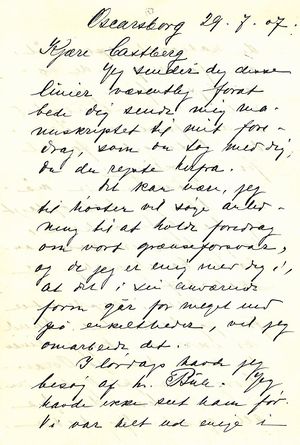 Oscarsborg 29.7.07.
Kjære Castberg
Jeg sender dig disse
linier væsentlig forat
bede dig sende mig ma-
nuskriptet til mit fore-
drag, som du tog med dig,
da du reiste herfra.
Det kan være, jeg
til høsten vil søge anled-
ning til at holde foredrag
om vort grænseforsvar,
og da jeg er enig med dig i,
at det i sin nuværende
form går for meget ind
på enkeltheder, vil jeg
omarbeide det.
I lørdags havde jeg
besøg af hr. Jeg
havde ikke seet ham før.
Vi var helt ud enige i